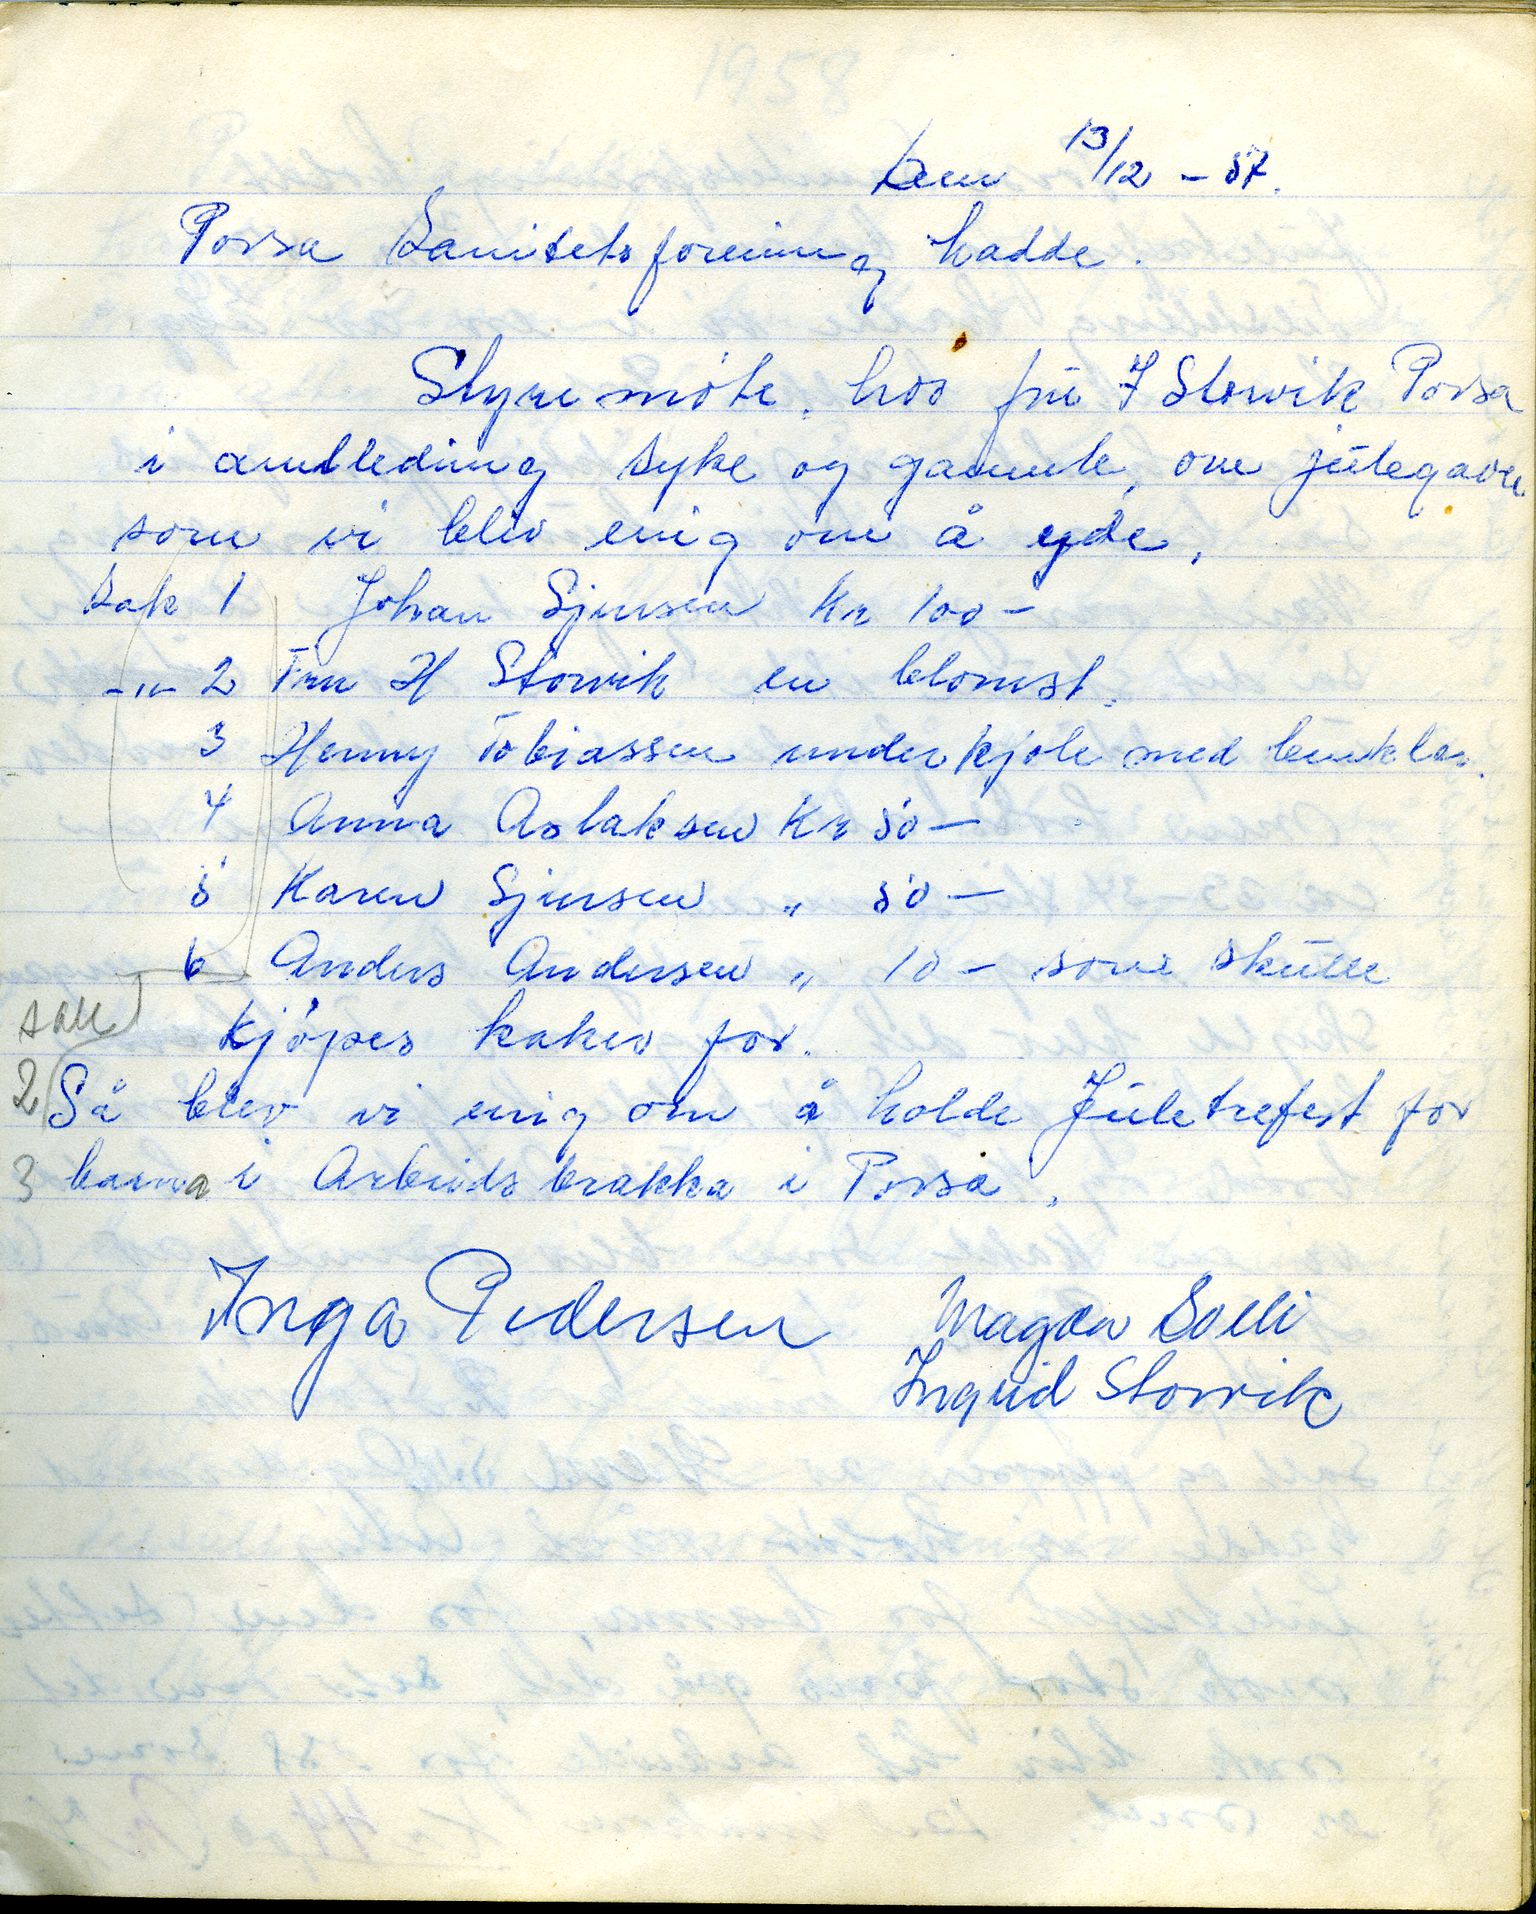 den 13/12 - 57.
Porsa Sanitetsforening hadde.
Styremöte. hos frü I Storvik Porsa
i anlledning syke og gamle, om jülegaver
som vi blev enig om å yde.
Sak 1 Johan Sjursen Kr 100 -
-"- 2 Fru H Storvik en blomst.
3 Henny Tobiassen underkjole med benklær.
4 Anna Aslaksen Kr 50 -
5 Karen Sjursen " 50 -
6 Anders Andersen " 10 - som skülle
kjöpes kaker for.
sak
2 Så blev vi enig om å holde Jületrefest for
3 barna i Arbeidsbrakka i Porsa.
Inga Pedersen Magda Solli
Ingrid Storvik